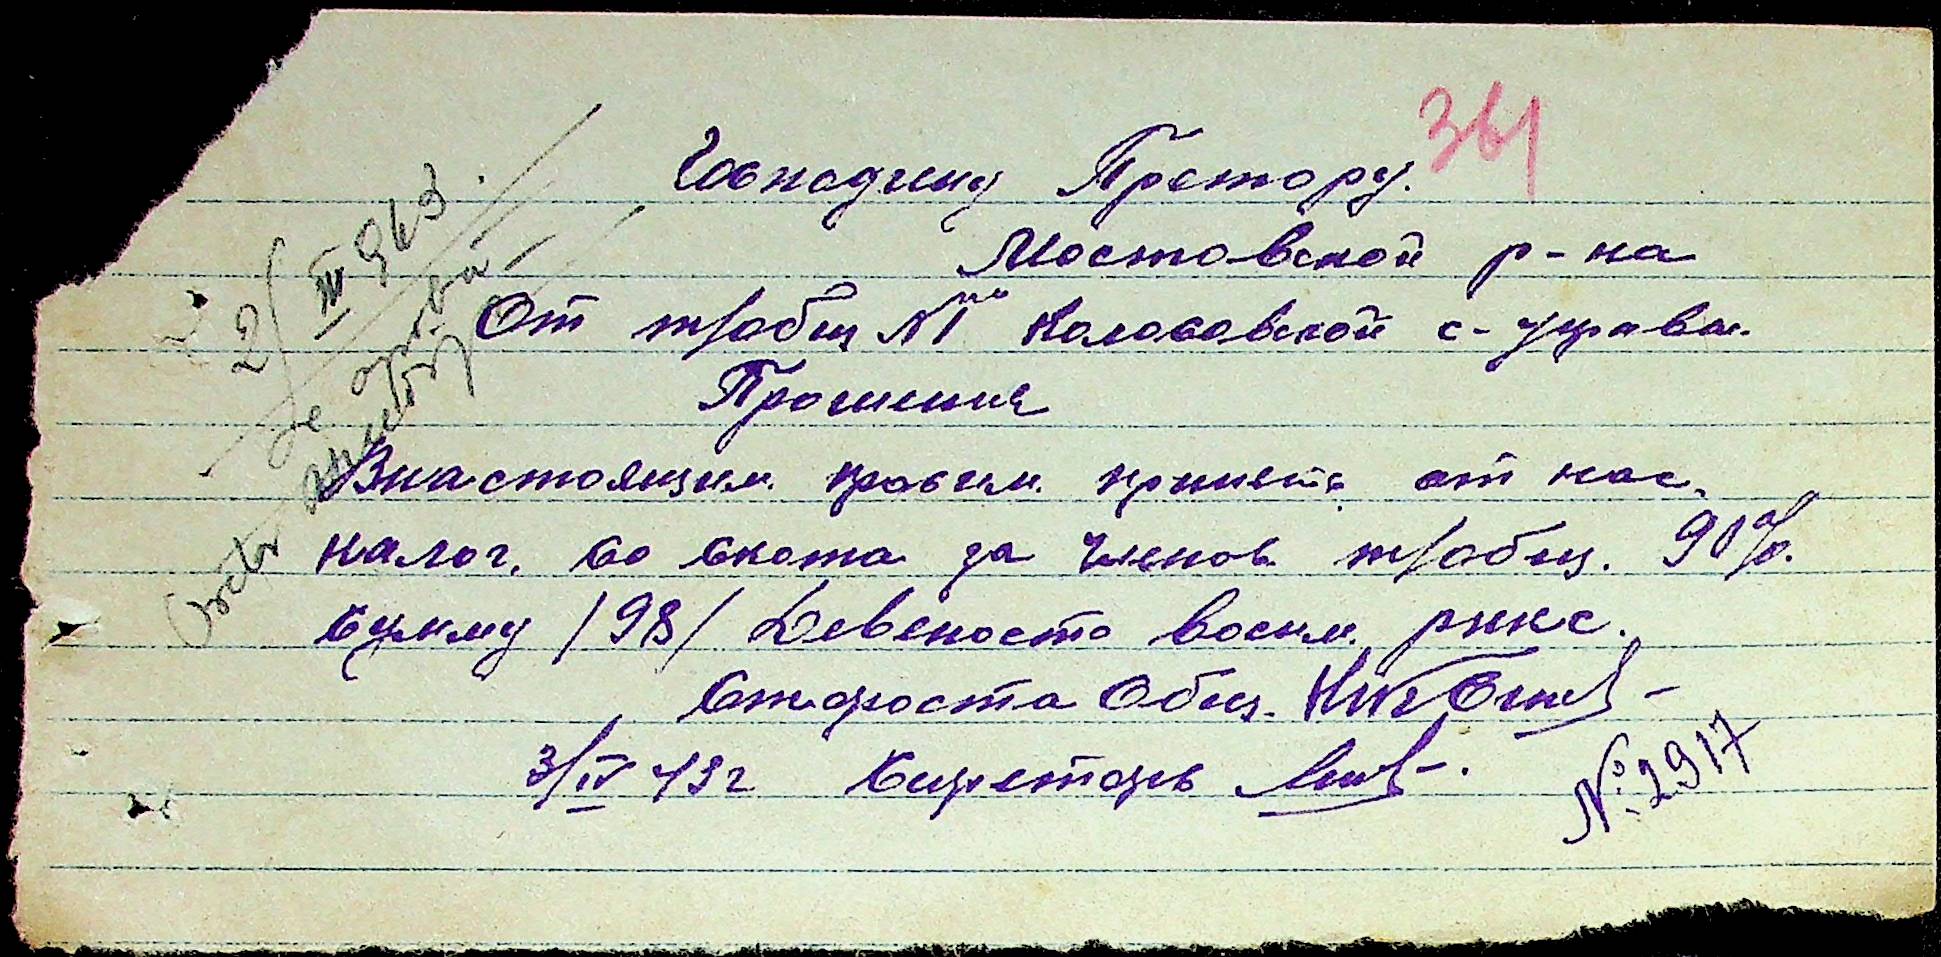 361
Господину Претору.
Мостовской р-на
От тр/общ №1 Колосовской с-управы.
Прошения
Внастоящим просим принять от нас,
налог, со скота за членов тр/общ. 90%.
сумму /98/ Девеносто восим. рккс.
Староста Общ.
3/IV 43г Сикретарь
№ 2917
2/III 943.